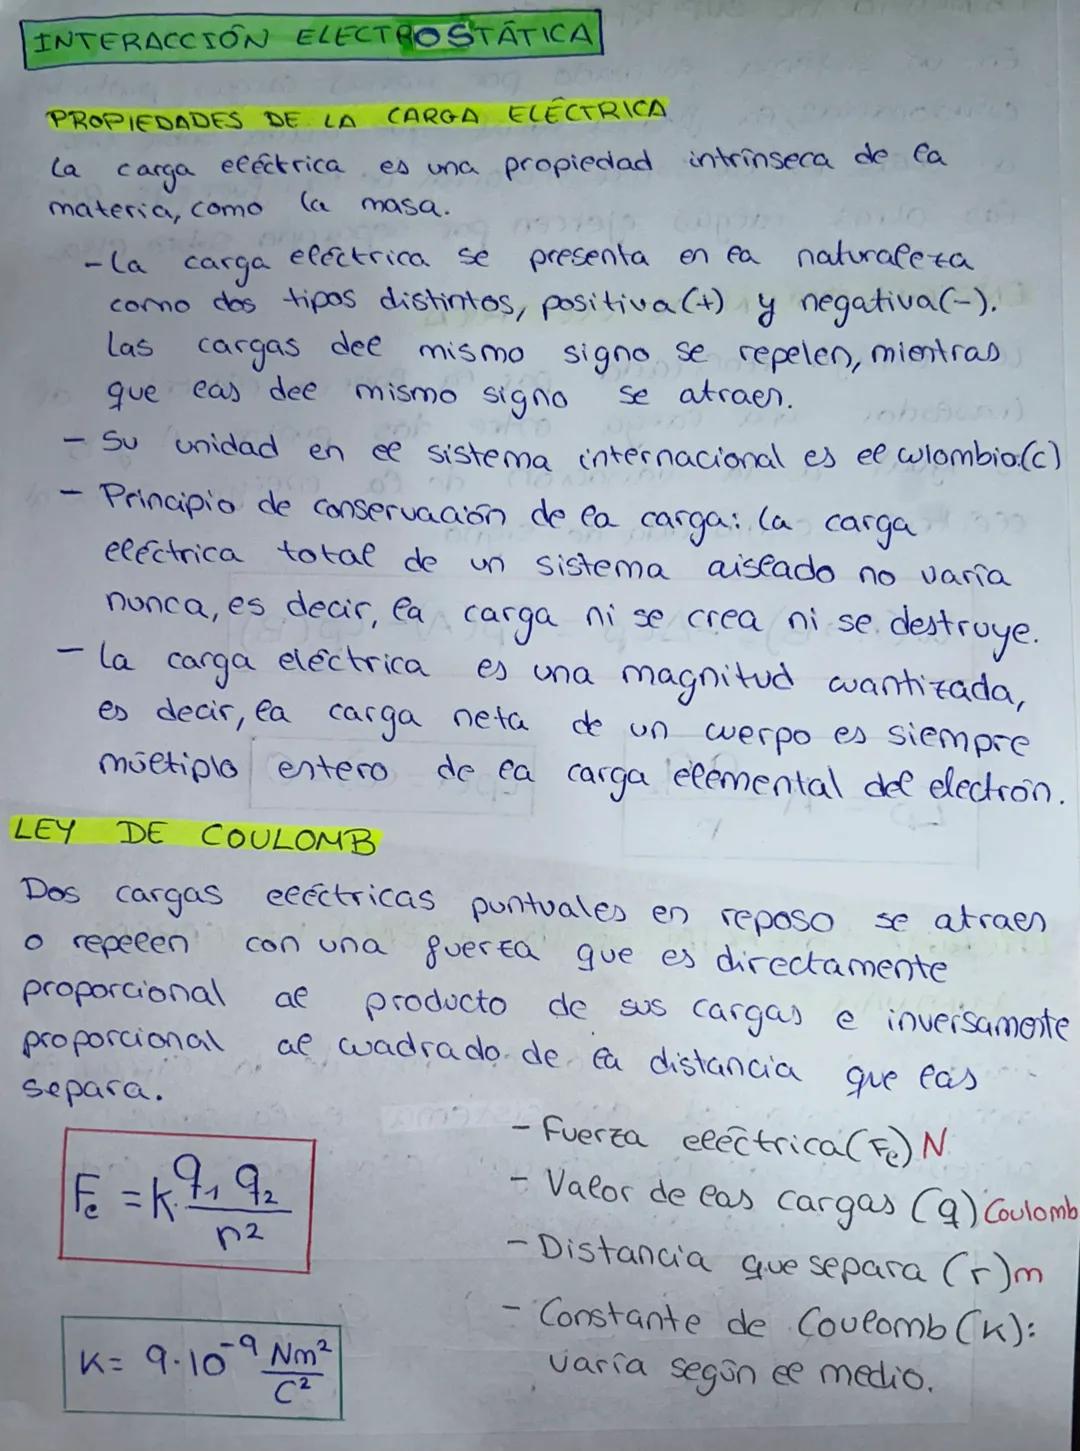 INTERACCIÓN ELECTROSTÁTICA
PROPIEDADES DE LA CARGA ELÉCTRICA
La carga eléctrica es una propiedad intrínseca de la
materia, como la masa.
- La carga eléctrica se presenta en la naturaleza
como dos tipos distintos, positiva (+) y negativa (-).
Las cargas del mismo signo se repelen, mientras
que las del mismo signo se atraen.
- Su unidad en el sistema internacional es el culombio.(C)
- Principio de conservación de la carga: La carga
eléctrica total de un sistema aislado no varía
nunca, es decir, la carga ni se crea ni se destruye.
- La carga eléctrica es una magnitud cuantizada,
es decir, la carga neta de un cuerpo es siempre
múltiplo entero de la carga elemental del electrón.
LEY DE COULOMB
Dos cargas eléctricas puntuales en reposo se atraen
o repelen con una fuerza que es directamente
proporcional al producto de sus cargas e inversamente
proporcional al cuadrado de la distancia que las
separa.
- Fuerza eléctrica (Fe) N
Fe = K · q1 q2 / r²
- Valor de las cargas (q) Coulomb
- Distancia que separa (r) m
- Constante de Coulomb (K):
varía según el medio.
K = 9·10⁻⁹ Nm²/C²